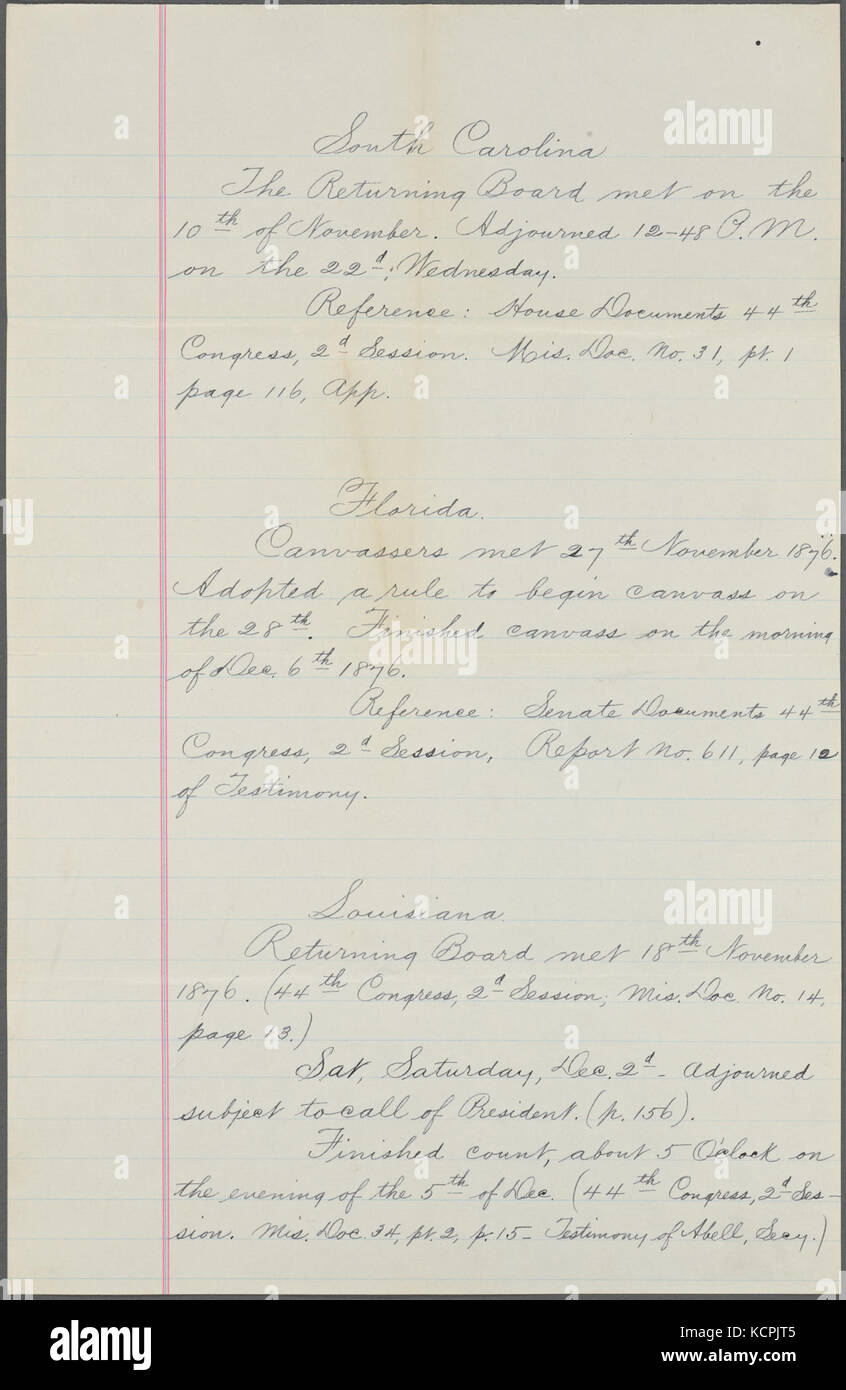 South Carolina
The Returning Board met on the
10th of November. Adjourned 12-48 P.M.
on the 22d; Wednesday.
Reference: House Documents 44th
Congress, 2d Session. Mis. Doc. No. 31, pt. 1
page 116, App.
Florida.
Canvassers met 27th November 1876.
Adopted a rule to begin canvass on
the 28th. Finished canvass on the morning
of Dec. 6th 1876.
Reference: Senate Documents 44th
Congress, 2d Session, Report No. 611, page 12
of Testimony.
Louisiana
Returning Board met 18th November
1876. (44th Congress, 2d Session; Mis. Doc. No. 14,
page 13.)
Sat, Saturday, Dec. 2d - adjourned
subject to call of President. (p. 156).
Finished count, about 5 O'clock on
the evening of the 5th of Dec. (44th Congress, 2d Ses-
sion. Mis. Doc. 34, pt. 2, p. 15 - Testimony of Abell, Secy.)
alamy
a
alamy
Image ID: KCPJT5
www.alamy.com